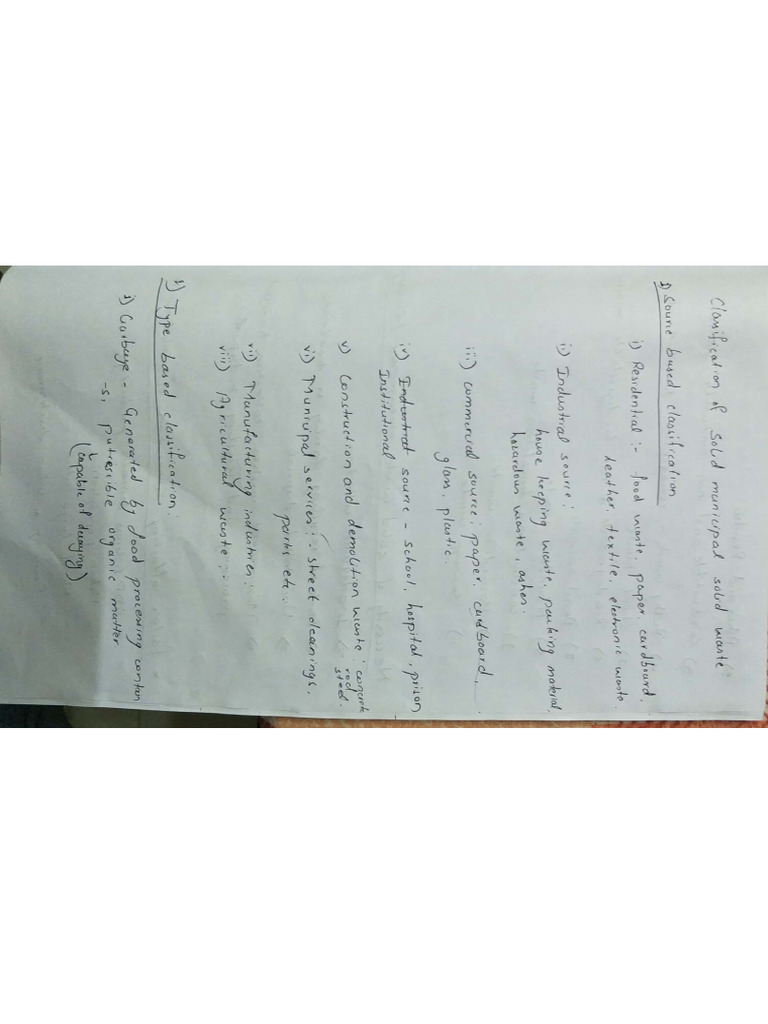 Classification of Solid municipal solid waste
1) Source based classification
i) Residential :- food waste, paper, cardboard,
leather, textile, electronic waste.
i) Industrial source :
house keeping waste, packing material,
hazardous waste, ashes.
iii) commercial source : paper, cardboard,
glass, plastic.
iv) Industrial source - school, hospital, prison
Institutional
v) Construction and demolition waste : concrete
rod
steel.
vi) Municipal services : street cleanings,
parks etc.
vii) Manufacturing industries :
viii) Agricultural waste :
2) Type based classification :
i) Garbage - Generated by food processing contain
-s, putresible organic matter
(capable of decaying)